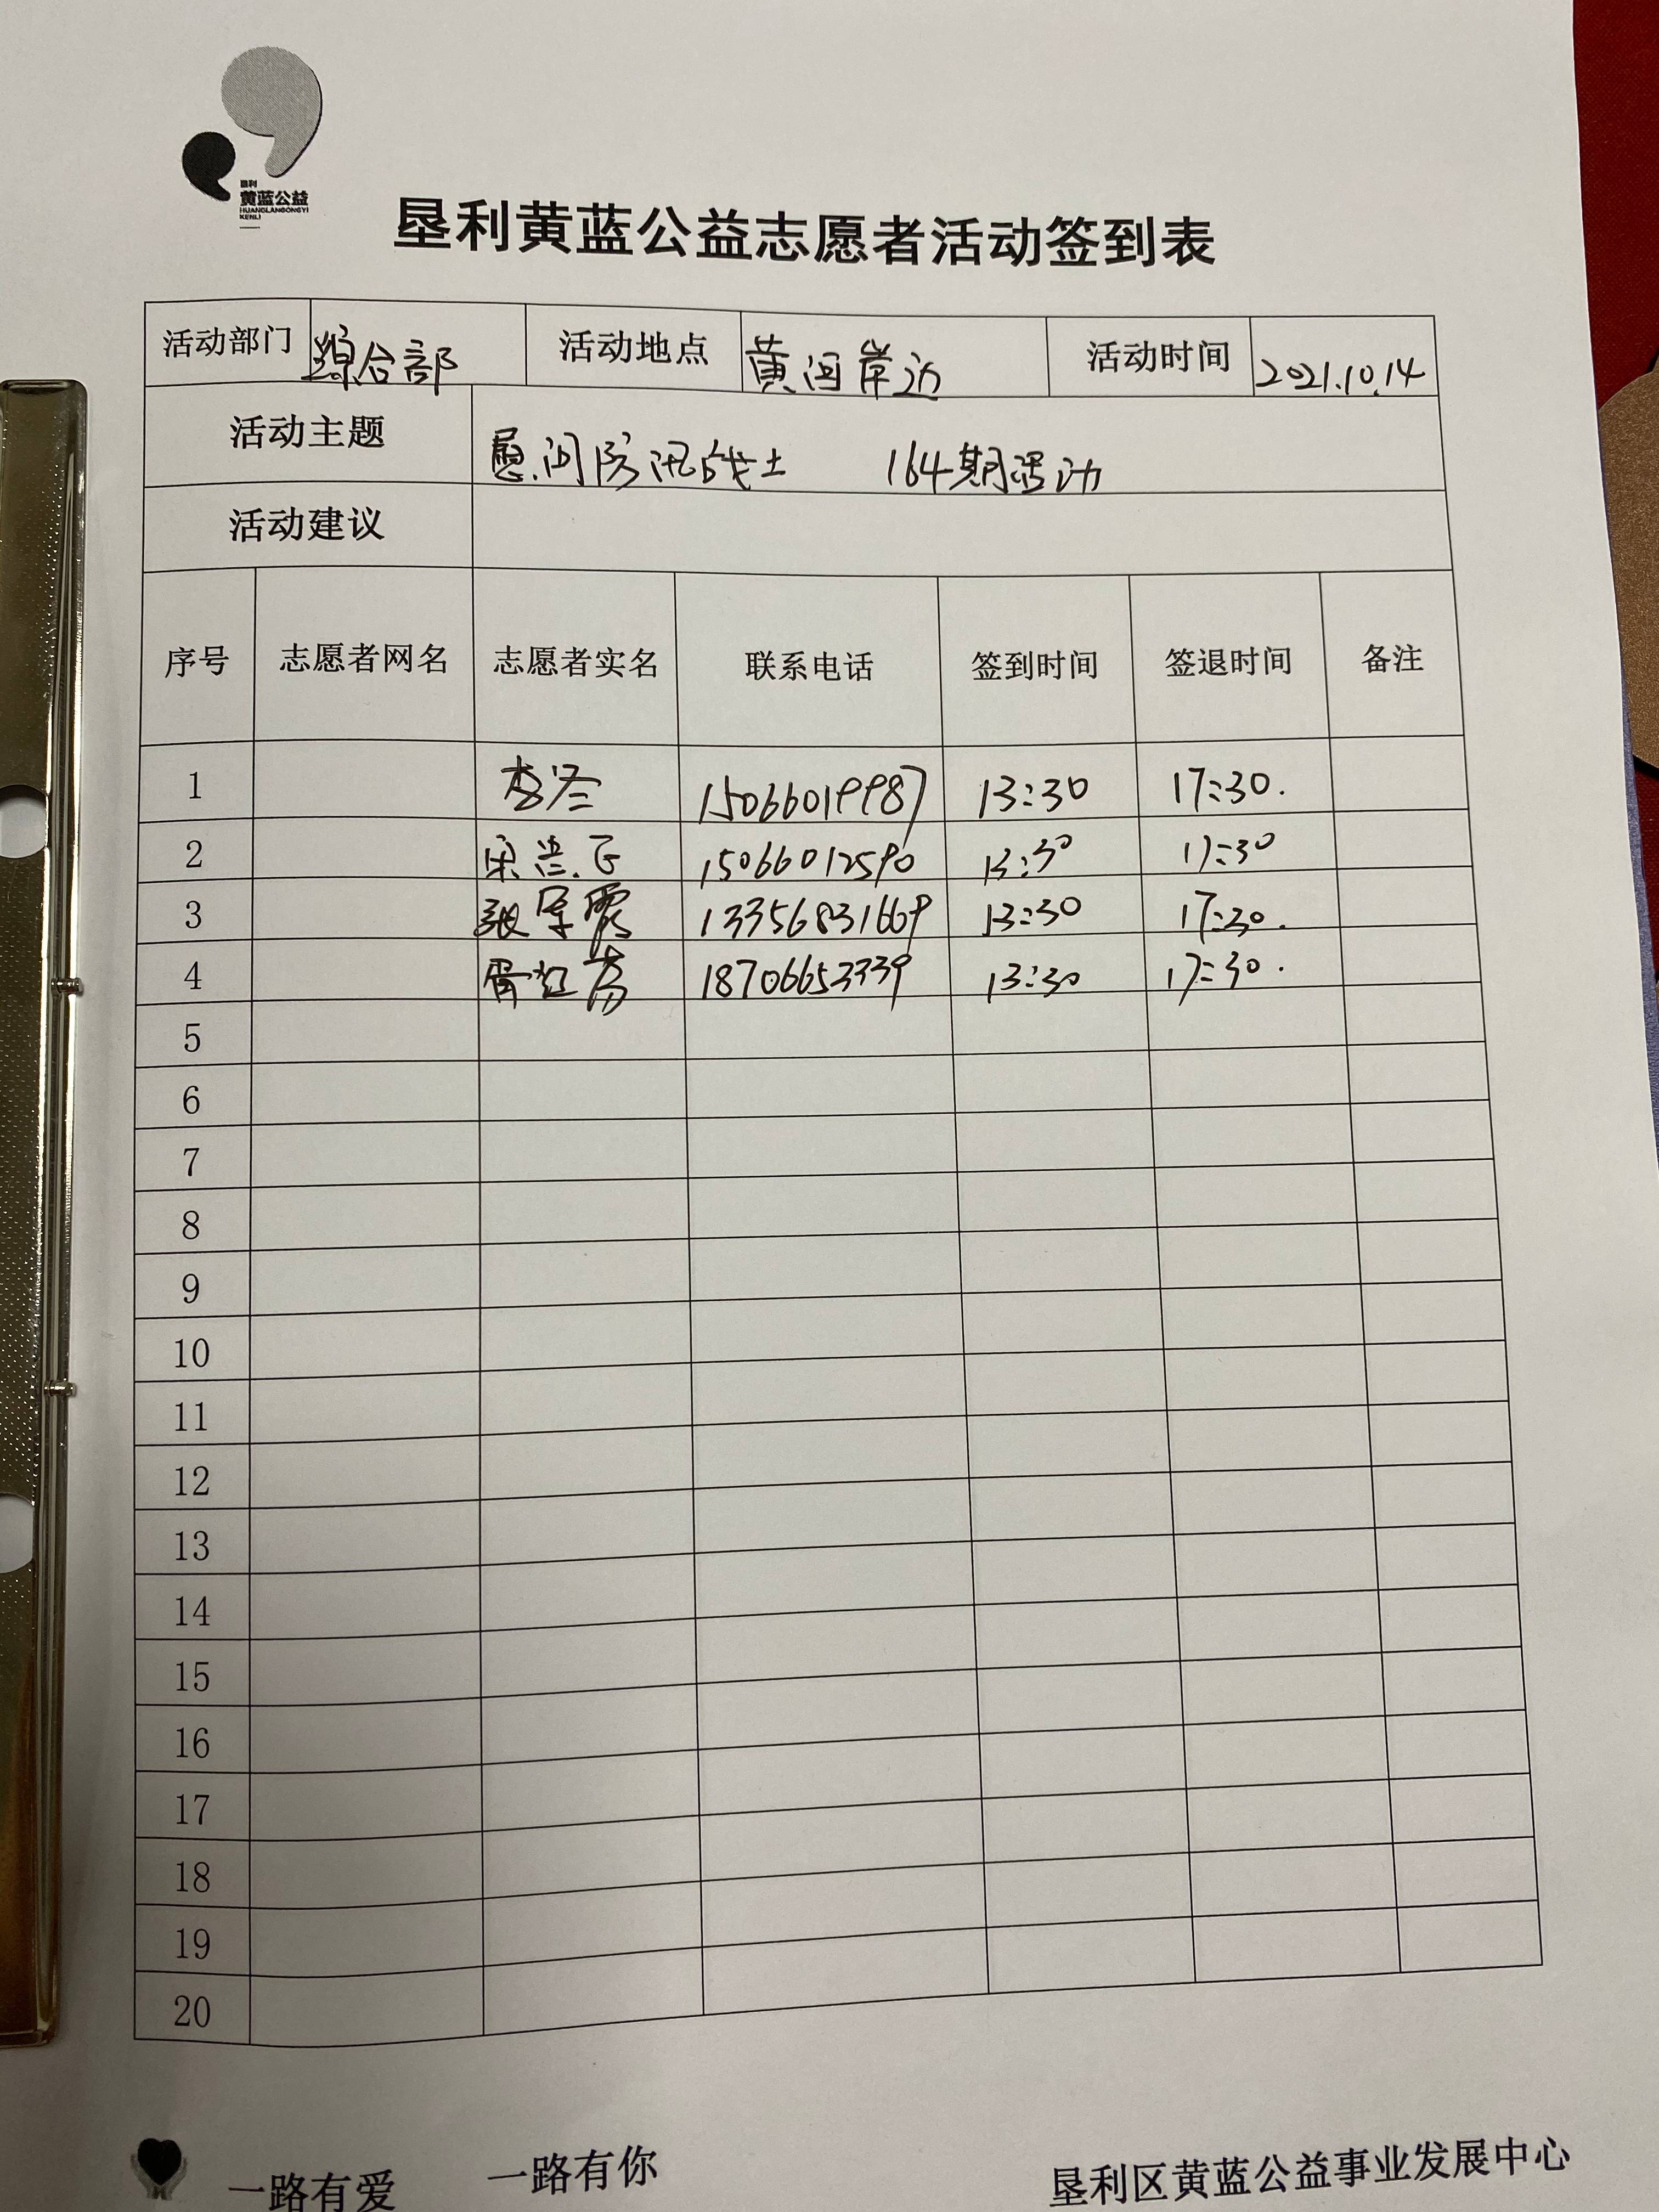 垦利
黄蓝公益
HUANGLANGONGYI
KENLI
垦利黄蓝公益志愿者活动签到表
活动部门 综合部 活动地点 黄河岸边 活动时间 2021.10.14
活动主题 慰问防汛战士 164期活动
活动建议
序号 志愿者网名 志愿者实名 联系电话 签到时间 签退时间 备注
1 15066019987 13:30 17:30.
2 宋 15066012590 13:30 17:30
3 张 13356831669 13:30 17:30.
4 18706653339 13:30 17:30.
5
6
7
8
9
10
11
12
13
14
15
16
17
18
19
20
一路有爱 一路有你 垦利区黄蓝公益事业发展中心